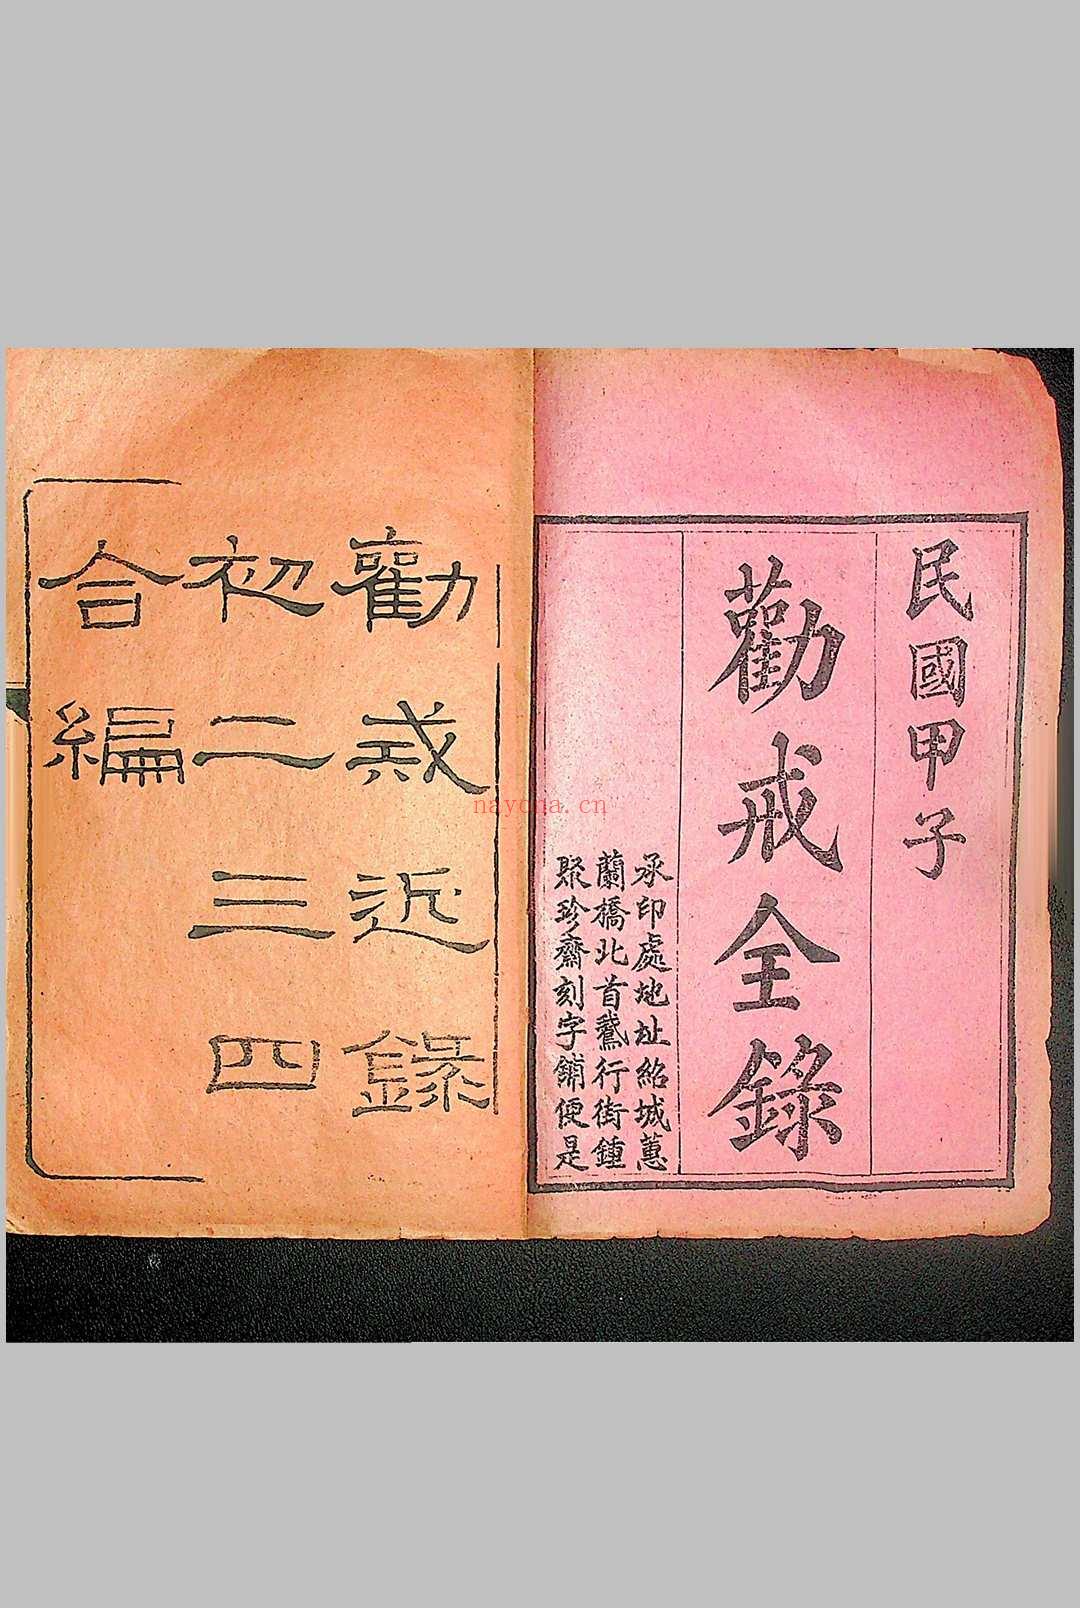 民國甲子
勸戒全錄
承印處地址紹城蕙
蘭橋北首鵞行街鍾
聚珍齋刻字舖便是
勸戒近錄
初二三四
合編
nayona.cn